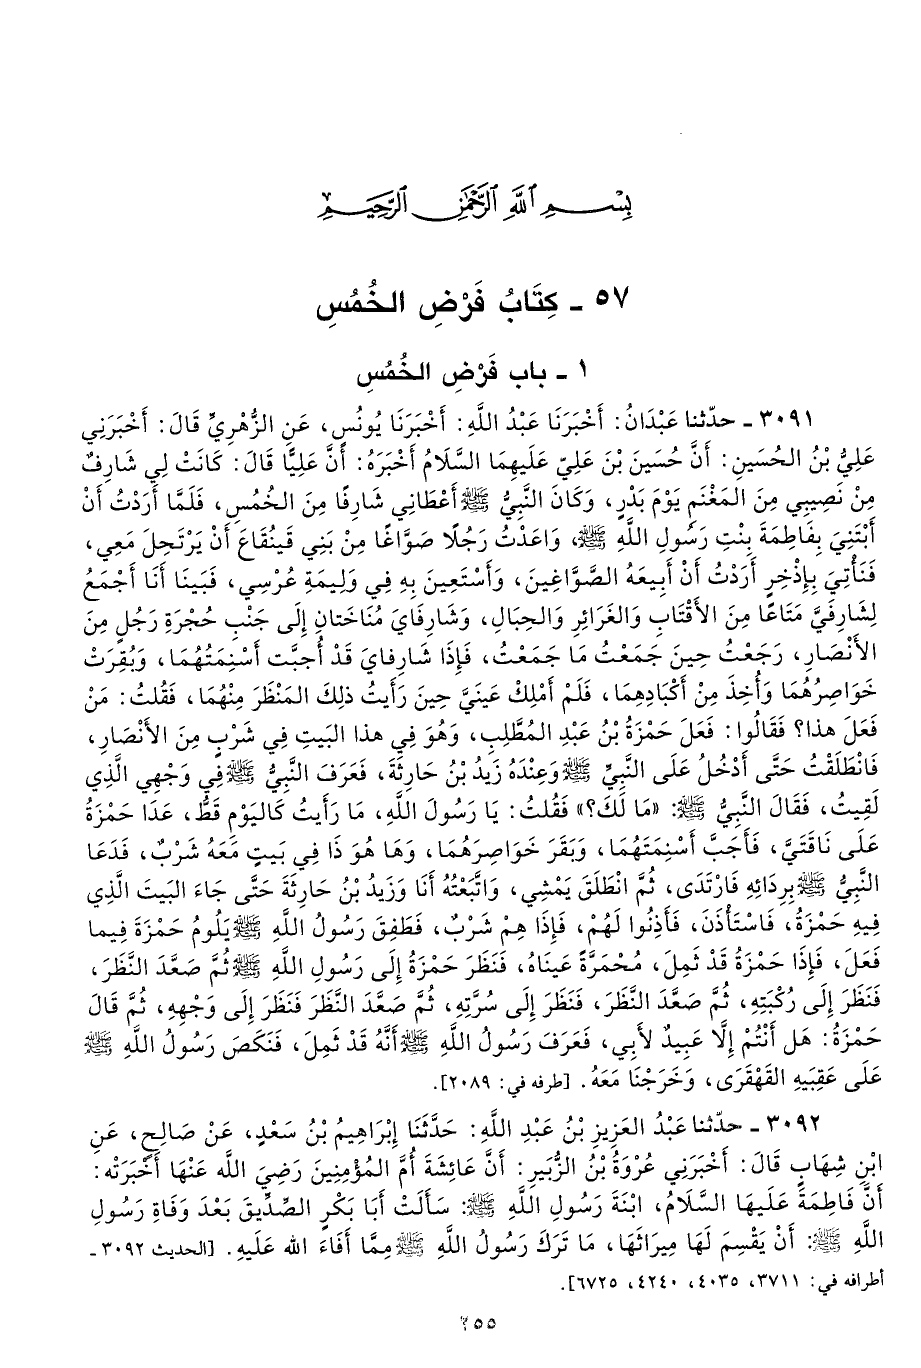 بِسْمِ ٱللَّهِ ٱلرَّحْمَٰنِ ٱلرَّحِيمِ
٥٧ ـ كِتَابُ فَرْضِ الخُمُسِ
١ ـ باب فَرْضِ الخُمُسِ
٣٠٩١ ـ حدّثنا عَبْدَانُ: أَخْبَرَنَا عَبْدُ اللَّهِ: أَخْبَرَنَا يُونُسُ، عَنِ الزُّهْرِيِّ قَالَ: أَخْبَرَنِي
عَلِيُّ بْنُ الحُسَينِ: أَنَّ حُسَينَ بْنَ عَلِيٍّ عَلَيهِمَا السَّلَامُ أَخْبَرَهُ: أَنَّ عَلِيًّا قَالَ: كَانَتْ لِي شَارِفٌ
مِنْ نَصِيبِي مِنَ المَغْنَمِ يَوْمَ بَدْرٍ، وَكَانَ النَّبِيُّ ﷺ أَعْطَانِي شَارِفًا مِنَ الخُمُسِ، فَلَمَّا أَرَدْتُ أَنْ
أَبْتَنِيَ بِفَاطِمَةَ بِنْتِ رَسُولِ اللَّهِ ﷺ، وَاعَدْتُ رَجُلًا صَوَّاغًا مِنْ بَنِي قَينُقَاعَ أَنْ يَرْتَحِلَ مَعِي،
فَنَأْتِيَ بِإِذْخِرٍ أَرَدْتُ أَنْ أَبِيعَهُ الصَّوَّاغِينَ، وَأَسْتَعِينَ بِهِ فِي وَلِيمَةِ عُرْسِي، فَبَينَا أَنَا أَجْمَعُ
لِشَارِفَيَّ مَتَاعًا مِنَ الأَقْتَابِ وَالغَرَائِرِ وَالحِبَالِ، وَشَارِفَايَ مُنَاخَتانِ إِلَى جَنْبِ حُجْرَةِ رَجُلٍ مِنَ
الأَنْصَارِ، رَجَعْتُ حِينَ جَمَعْتُ مَا جَمَعْتُ، فَإِذَا شَارِفايَ قَدْ أُجِبَّتْ أَسْنِمَتُهُمَا، وَبُقِرَتْ
خَوَاصِرُهُمَا وَأُخِذَ مِنْ أَكْبَادِهِمَا، فَلَمْ أَمْلِكْ عَينَيَّ حِينَ رَأَيتُ ذلِكَ المَنْظَرَ مِنْهُمَا، فَقُلتُ: مَنْ
فَعَلَ هذا؟ فَقَالُوا: فَعَلَ حَمْزَةُ بْنُ عَبْدِ المُطَّلِبِ، وَهُوَ فِي هذا البَيتِ فِي شَرْبٍ مِنَ الأَنْصَارِ،
فَانْطَلَقْتُ حَتَّى أَدْخُلُ عَلَى النَّبِيِّ ﷺ وَعِنْدَهُ زَيدُ بْنُ حَارِثَةَ، فَعَرَفَ النَّبِيُّ ﷺ فِي وَجْهِي الَّذِي
لَقِيتُ، فَقَالَ النَّبِيُّ ﷺ: «مَا لَكَ؟» فَقُلتُ: يَا رَسُولَ اللَّهِ، مَا رَأَيتُ كَاليَوْمِ قَطُّ، عَدَا حَمْزَةُ
عَلَى نَاقَتَيَّ، فَأَجَبَّ أَسْنِمَتَهُمَا، وَبَقَرَ خَوَاصِرَهُمَا، وَهَا هُوَ ذَا فِي بَيتٍ مَعَهُ شَرْبٌ، فَدَعَا
النَّبِيُّ ﷺ بِرِدَائِهِ فَارْتَدَى، ثُمَّ انْطَلَقَ يَمْشِي، وَاتَّبَعْتُهُ أَنَا وَزَيدُ بْنُ حَارِثَةَ حَتَّى جَاءَ البَيتَ الَّذِي
فِيهِ حَمْزَةُ، فَاسْتَأْذَنَ، فَأَذِنُوا لَهُمْ، فَإِذَا هِمْ شَرْبٌ، فَطَفِقَ رَسُولُ اللَّهِ ﷺ يَلُومُ حَمْزَةَ فِيما
فَعَلَ، فَإِذَا حَمْزَةُ قَدْ ثَمِلَ، مُحْمَرَّةً عَينَاهُ، فَنَظَرَ حَمْزَةُ إِلَى رَسُولِ اللَّهِ ﷺ ثُمَّ صَعَّدَ النَّظَرَ،
فَنَظَرَ إِلَى رُكْبَتِهِ، ثُمَّ صَعَّدَ النَّظَرَ، فَنَظَرَ إِلَى سُرَّتِهِ، ثُمَّ صَعَّدَ النَّظَرَ فَنَظَرَ إِلَى وَجْهِهِ، ثُمَّ قَالَ
حَمْزَةُ: هَل أَنْتُمْ إِلَّا عَبِيدٌ لأَبِي، فَعَرَفَ رَسُولُ اللَّهِ ﷺ أَنَّهُ قَدْ ثَمِلَ، فَنَكَصَ رَسُولُ اللَّهِ ﷺ
عَلَى عَقِبَيهِ القَهْقَرَى، وَخَرَجْنَا مَعَهُ. [طرفه في: ٢٠٨٩].
٣٠٩٢ ـ حدّثنا عَبْدُ العَزِيزِ بْنُ عَبْدِ اللَّهِ: حَدَّثَنَا إِبْرَاهِيمُ بْنُ سَعْدٍ، عَنْ صَالِحٍ، عَنِ
ابْنِ شِهَابٍ قَالَ: أَخْبَرَنِي عُرْوَةُ بْنُ الزُّبَيرِ: أَنَّ عَائِشَةَ أُمَّ المُؤْمِنِينَ رَضِيَ اللَّه عَنْهَا أَخْبَرَتْه:
أَنَّ فَاطِمَةَ عَلَيهَا السَّلَامُ، ابْنَةَ رَسُولِ اللَّهِ ﷺ: سَأَلَتْ أَبَا بَكْرٍ الصِّدِّيقَ بَعْدَ وَفَاةِ رَسُولِ
اللَّهِ ﷺ: أَنْ يَقْسِمَ لَهَا مِيرَاثَهَا، مَا تَرَكَ رَسُولُ اللَّهِ ﷺ مِمَّا أَفَاءَ الله عَلَيهِ. [الحديث ٣٠٩٢ ـ
أطرافه في: ٣٧١١، ٤٠٣٥، ٤٢٤٠، ٦٧٢٥].
٢٥٥